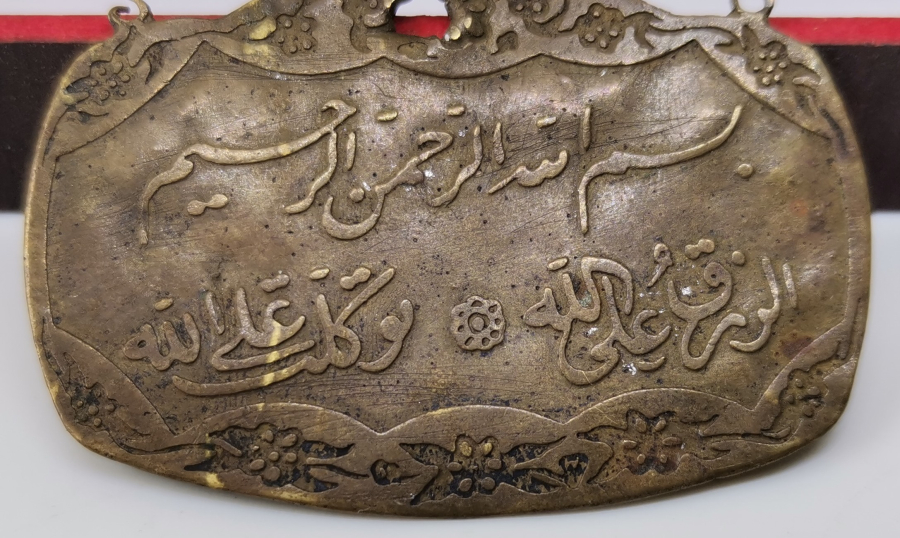 بسم الله الرحمن الرحيم
الرزق على الله توكلت على الله